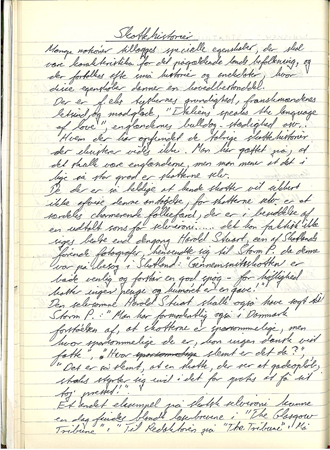 Skottehistorier
Mange nationer tillægges specielle egenskaber, der skal
være karakteristiske for det pågældende lands befolkning, og
der fortælles ofte små historier og anekdoter, hvor
disse egenskaber danner en hovedbestanddel.
Der er f.eks. tyskernes grundighed, franskmændenes
letsind og madglæde, "Italiens speaks the language
of love", englændernes bulldog-stædighed osv.
Hvem der har opfundet de utalige skottehistorier
der eksisterer vides ikke. Men har gættet på, at
det skulle være englænderne, men man mener at det i
lige så stor grad er skotterne selv.
at de er så heldige at kende skotter vil sikkert
ikke afvise denne antagelse, for skotterne selv er et
særdeles charmerende folkefærd, der er i besiddelse af
en udtalt sans for selvironi..... det kan faktisk ikke
siges bedre end dengang Harold Stuart, een af Skotlands
førende fotografer, henvendte sig til Storm P. da denne
var på besøg i Skotland: "Gennemsnitsskotten er
både venlig og fortår en god spøg - for skydighed
koster ingen penge og humoret er en gave!"
Den selvsamme Harold Stuart skulle også have sagt til
Storm P.: "Man har formodentlig også i Danmark
forståelsen af, at skotterne er sparsommelige, men
hvor sparsommelige de er, kan ingen dansk vist
fatte". "Hvor slemt er det da?",
"Det er så slemt, at en skotte, der ser et gadeopløb,
straks styrter sig ind i det for gratis at få sit
tøj presset!"
Et andet eksempel på skotsk selvironi kunne
en dag findes blandt læserbrevene i "The Glasgow
Tribune": "Til Redaktøren på "The Tribune":